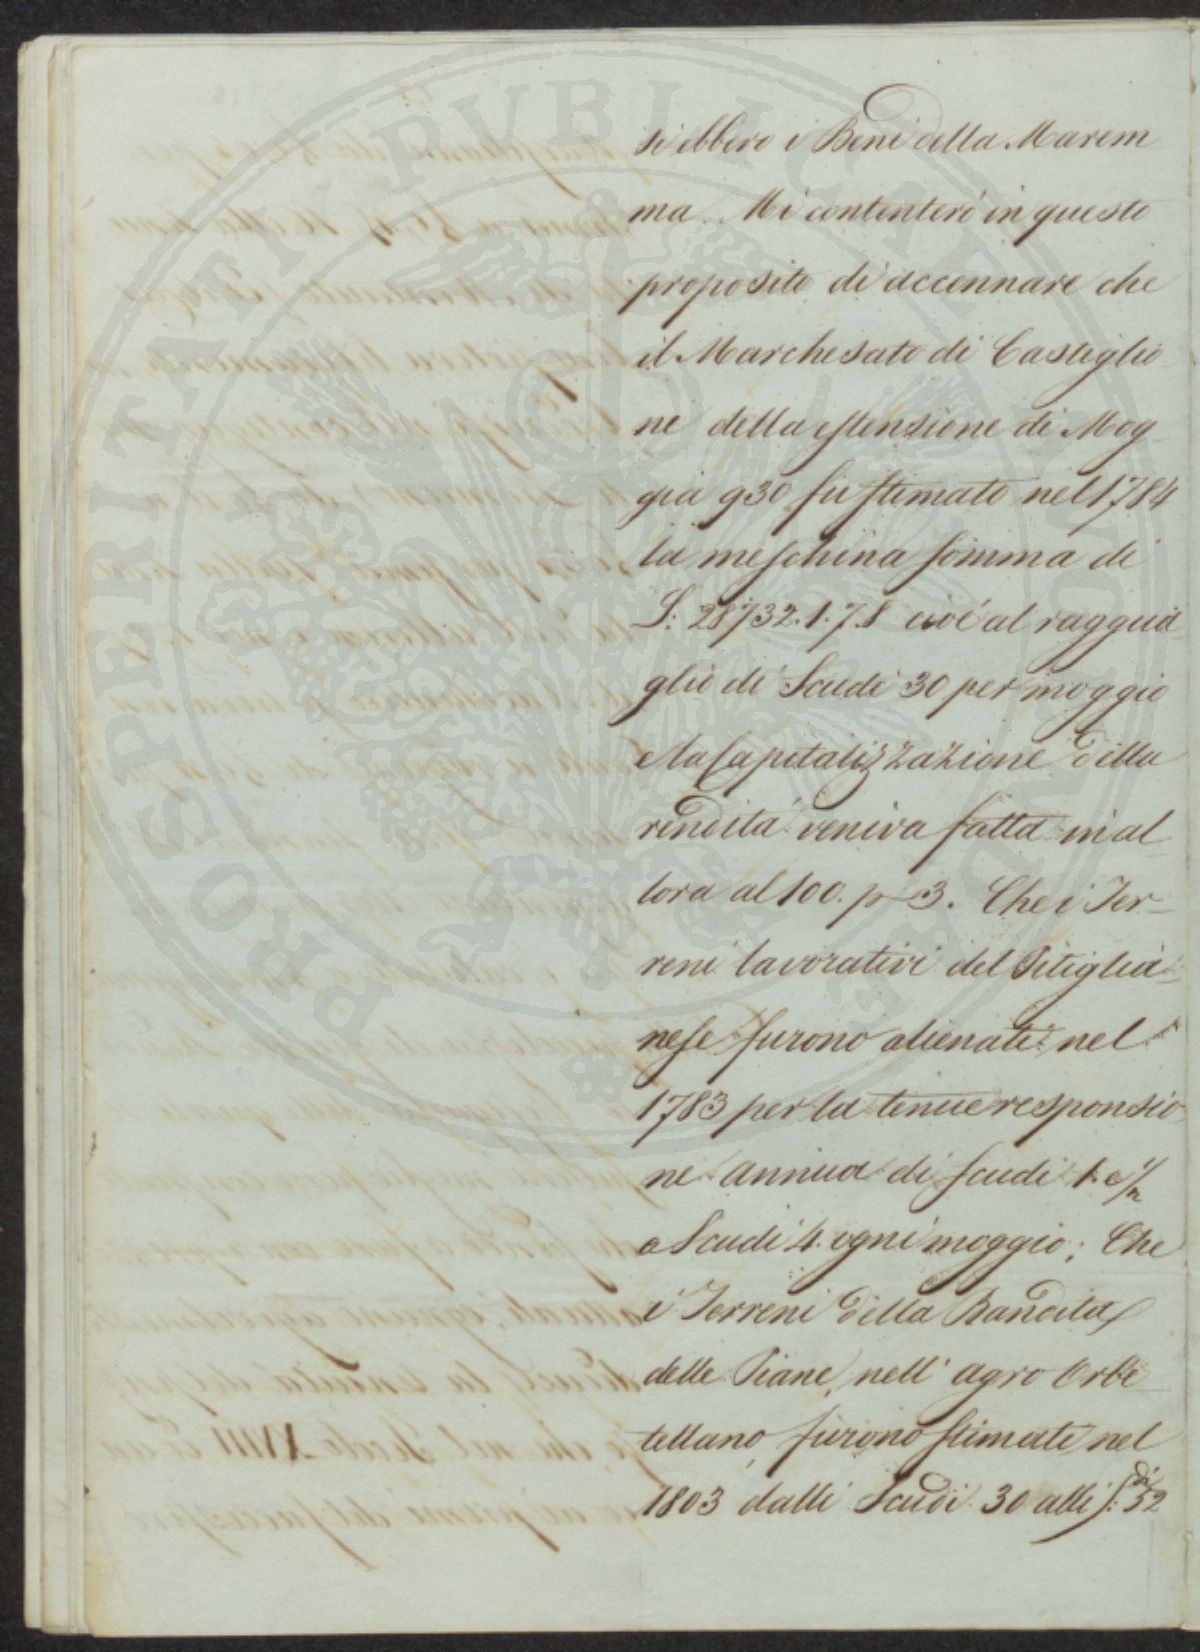 si ebbero i Beni della Marem
ma. Mi contenterò in questo
proposito di accennare che
il Marchesato di Castiglio
ne della estensione di Mog-
gia 930 fu stimato nel 1784
la meschina somma di
S: 28732.1.7.8 cioè al raggua
glio di Scudi 30 per moggio
e la Capitalizzazione della
rendita veniva fatta in al
lora al 100. p 3. Che i Ter-
reni lavorativi del Pitiglia-
nese furono alienati nel
1783 per la tenue responsio
ne annua di scudi 1. e 1/2
a Scudi 4. ogni moggio; Che
i Terreni della Bandita
delle Piane, nell' agro Orbe
tellano furono stimati nel
1803 dalli Scudi 30 alli S:di 52
PROSPERITATI PVBLICAE AVGENDAE